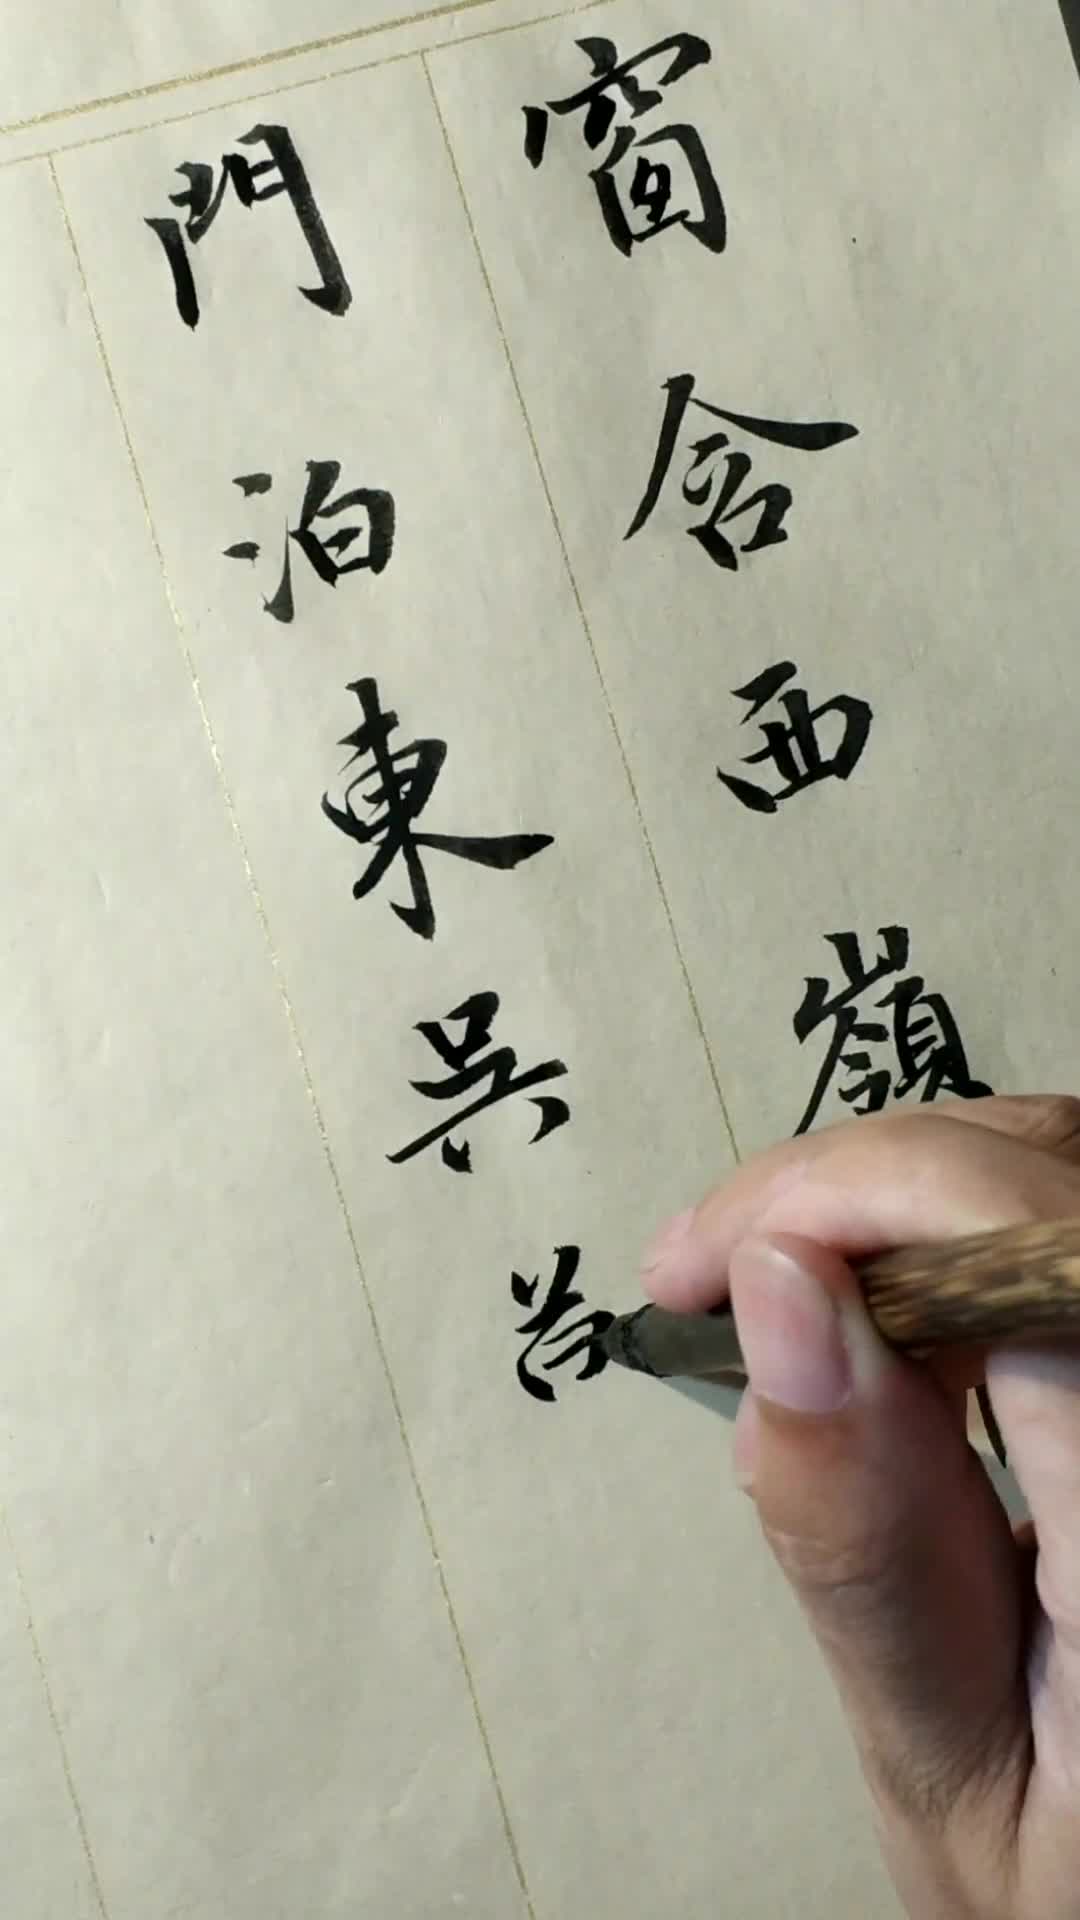 窗含西嶺
門泊東吳